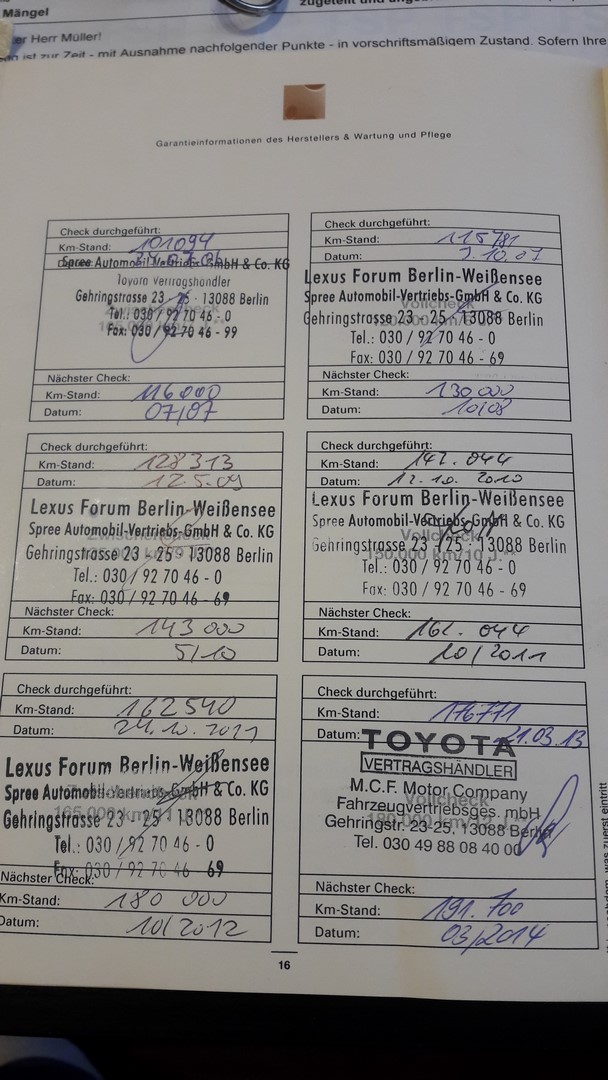 Mängel
er Herr Müller!
ist zur Zeit - mit Ausnahme nachfolgender Punkte - in vorschriftsmäßigem Zustand. Sofern Ihre
Garantieinformationen des Herstellers & Wartung und Pflege
Check durchgeführt:
Km-Stand: 101094
Spree Automobil-Vertriebs-GmbH & Co. KG
Toyota Vertragshändler
Gehringstrasse 23 - 25 - 13088 Berlin
Tel.: 030 / 92 70 46 - 0
Fax: 030 / 92 70 46 - 99
Nächster Check:
Km-Stand: 116000
Datum: 07/07
Check durchgeführt:
Km-Stand: 115781
Datum: 2.10.07
Lexus Forum Berlin-Weißensee
Spree Automobil-Vertriebs-GmbH & Co. KG
Gehringstrasse 23 - 25 - 13088 Berlin
Tel.: 030 / 92 70 46 - 0
Fax: 030 / 92 70 46 - 69
Nächster Check:
Km-Stand: 130 000
Datum: 10/08
Check durchgeführt:
Km-Stand: 128313
Datum: 12.5.09
Lexus Forum Berlin-Weißensee
Spree Automobil-Vertriebs-GmbH & Co. KG
Gehringstrasse 23 - 25 - 13088 Berlin
Tel.: 030 / 92 70 46 - 0
Fax: 030 / 92 70 46 - 69
Nächster Check:
Km-Stand: 143 000
Datum: 5/10
Check durchgeführt:
Km-Stand: 142.044
Datum: 12.10.2010
Lexus Forum Berlin-Weißensee
Spree Automobil-Vertriebs-GmbH & Co. KG
Gehringstrasse 23 - 25 - 13088 Berlin
Vollcheck
150.000 km/10
Tel.: 030 / 92 70 46 - 0
Fax: 030 / 92 70 46 - 69
Nächster Check:
Km-Stand: 162.044
Datum: 10/2011
Check durchgeführt:
Km-Stand: 162540
Datum: 24.10.2011
Lexus Forum Berlin-Weißensee
Spree Automobil-Vertriebs-GmbH & Co. KG
Gehringstrasse 23 - 25 - 13088 Berlin
Tel.: 030 / 92 70 46 - 0
Fax: 030 / 92 70 46 - 69
Nächster Check:
Km-Stand: 180 000
Datum: 10/2012
Check durchgeführt:
Km-Stand: 176771
Datum: 21.03.13
TOYOTA
VERTRAGSHÄNDLER
M.C.F. Motor Company
Fahrzeugvertriebsges. mbH
Gehringstr. 23-25, 13088 Berlin
Tel. 030 49 88 08 40 00
Vollcheck
Nächster Check:
Km-Stand: 191.700
Datum: 03/2014
16
was zuerst eintritt